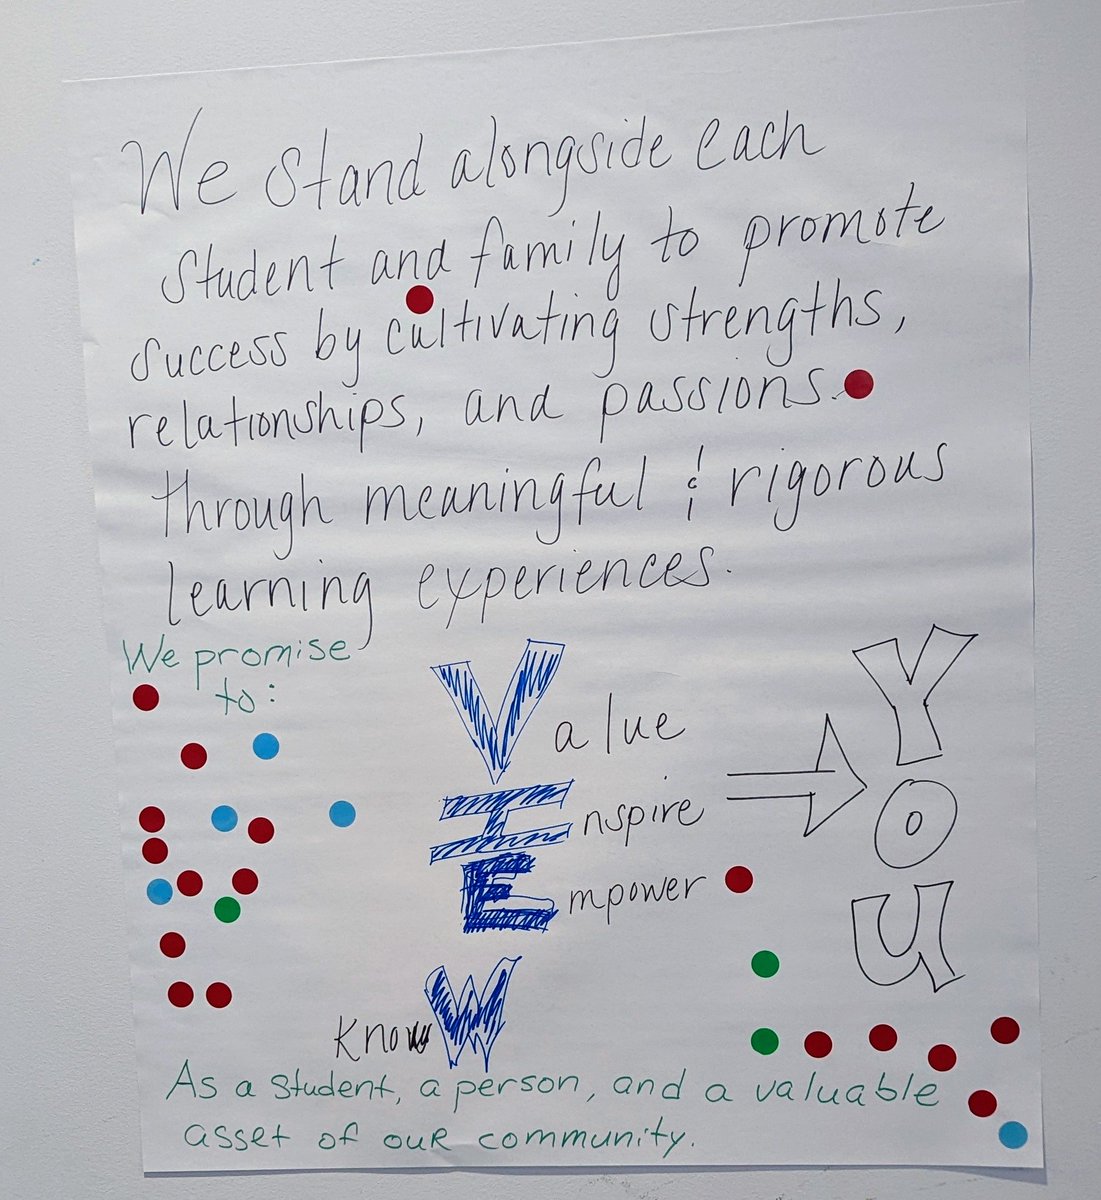 We stand alongside each
student and family to promote
success by cultivating strengths,
relationships, and passions.
through meaningful & rigorous
learning experiences.
We promise
to:
Value
Inspire
Empower
Know W
YOU
As a student, a person, and a valuable
asset of our community.